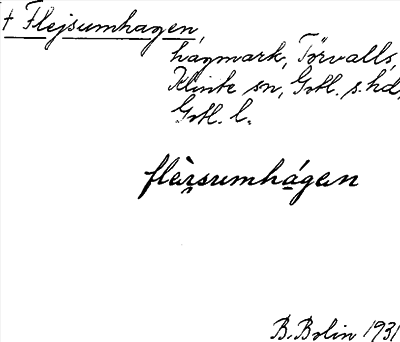 † Flejsumhagen,
hagmark, Törvalls,
Klinte sn, Gotl. s. hd,
Gotl. l.
flèi̯sumhágan
B. Bolin 1931